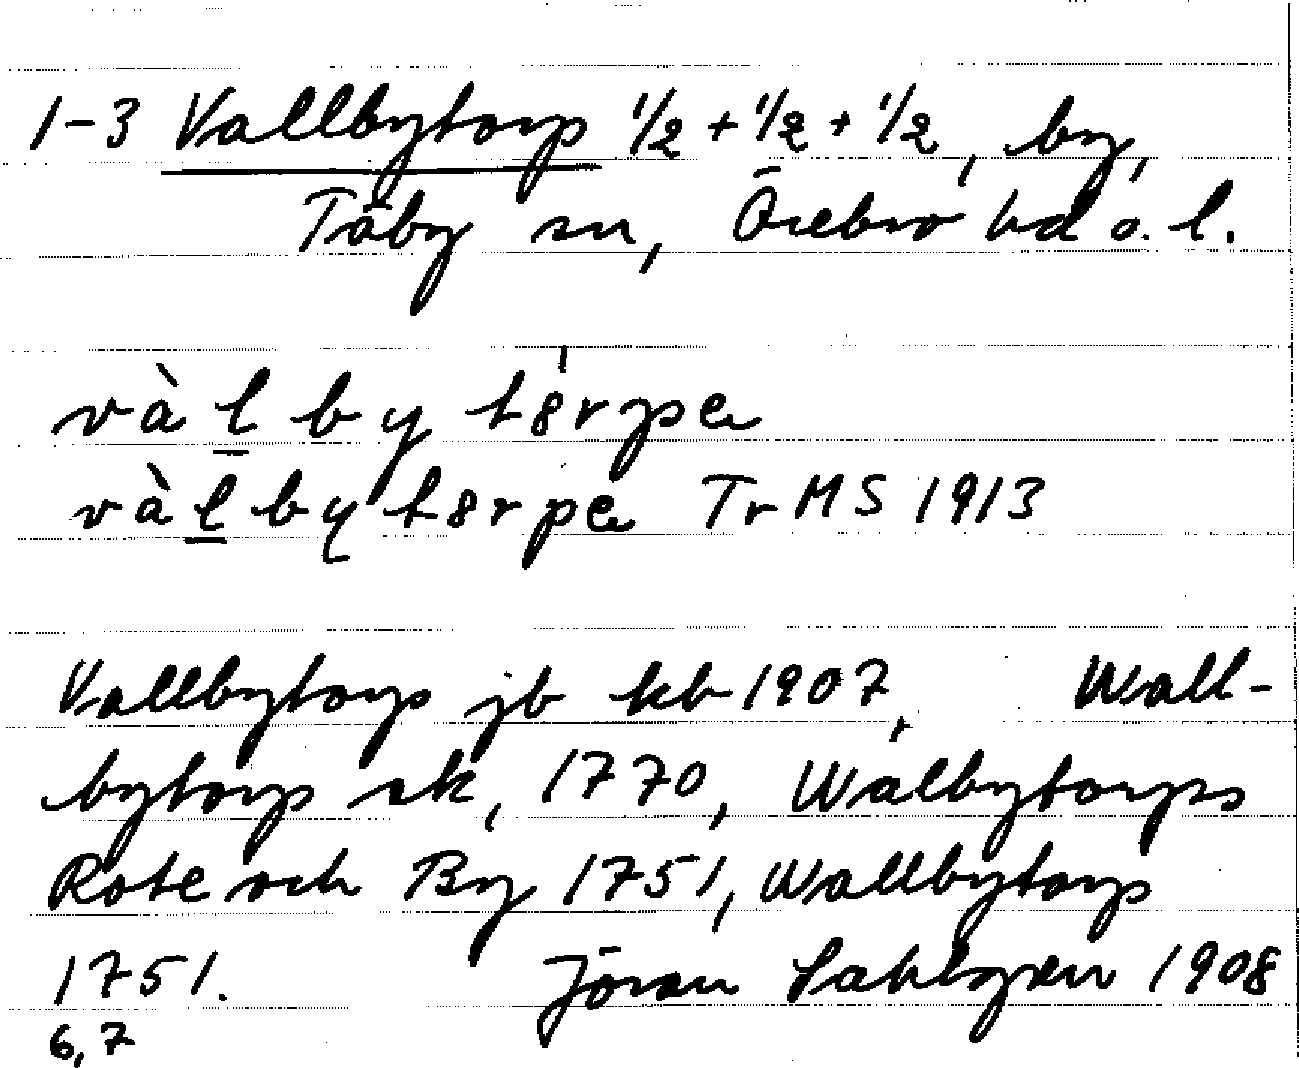 1-3 Vallbytorp 1/2 + 1/2 + 1/2, by,
Täby sn, Örebro hd ö. l.
vàl̲bytꞌ8rpe
vàl̲byt8rpe Tr MS 1913
Vallbytorp jb kb 1907, Wall-
bytorp sk, 1770, Walbytorps
Rote och By 1751, Wallbytorp
1751. Jöran Sahlgren 1908
6,7